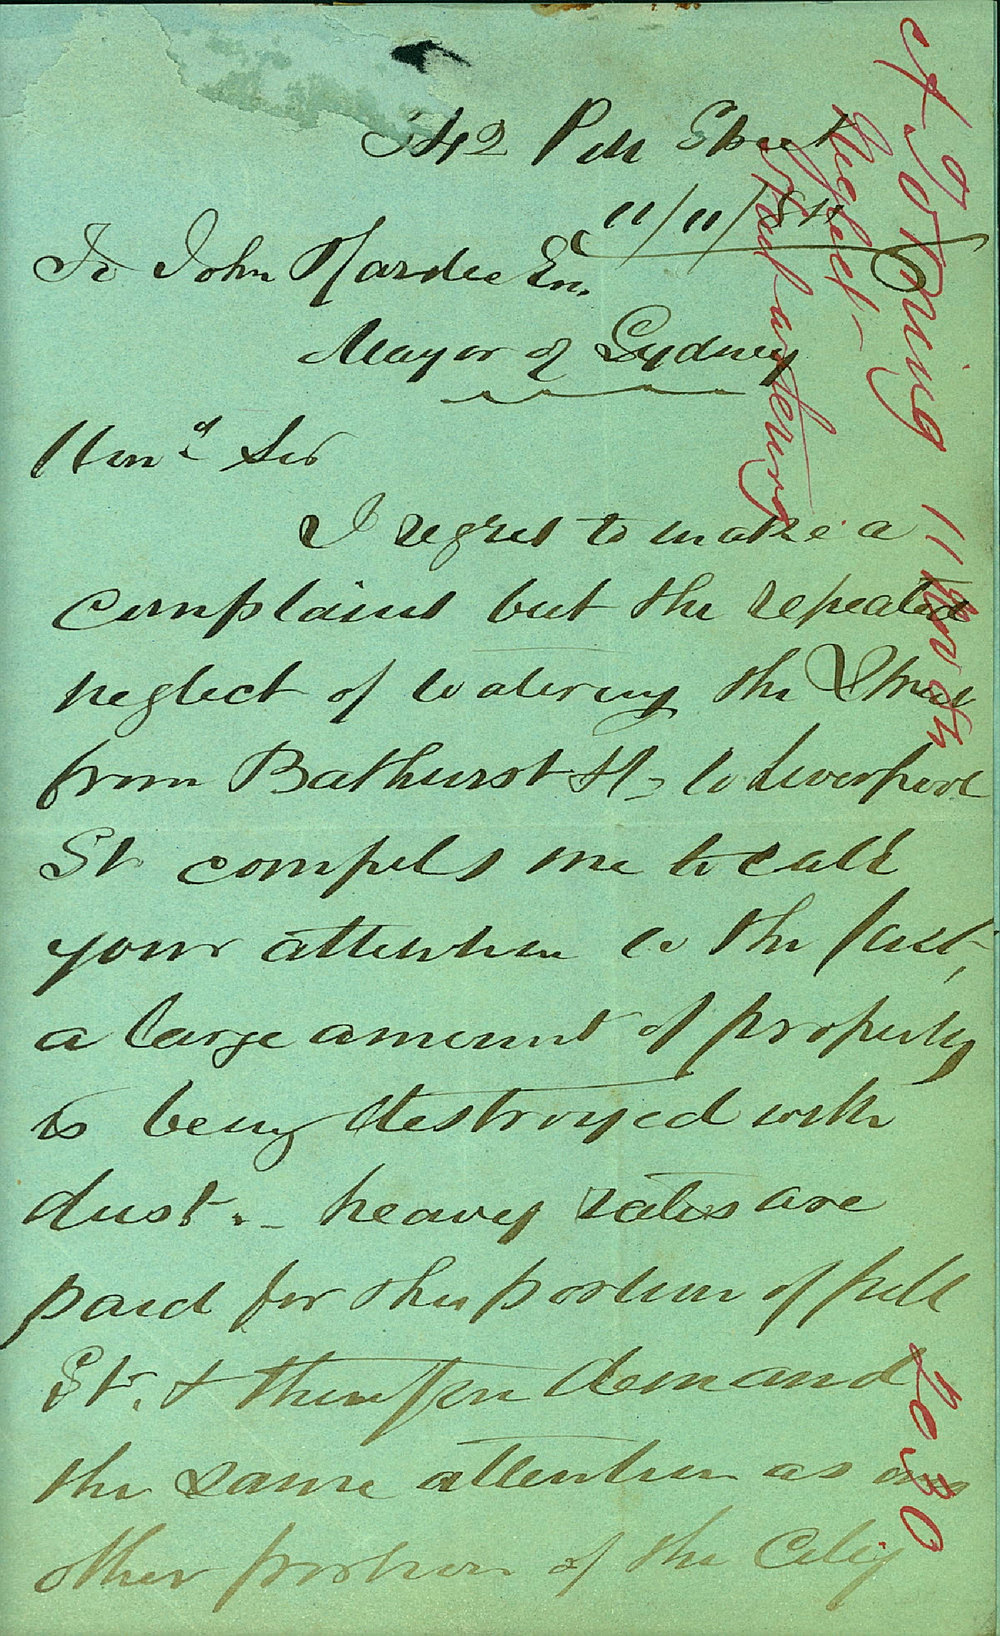 342 Pitt Street
11/11/84
To John Hardie Esq.
Mayor of Sydney
Hon.d Sir
I regret to make a
complaint but the repeated
neglect of watering the Street
from Bathurst St to Liverpool
St compels me to call
your attention to the fact,
a large amount of property
is being destroyed with
dust. - heavy rates are
paid for this portion of pitt
St. & therefore demand
the same attention as any
other portion of the City
11 Nov 84
Neglect -
Street watering